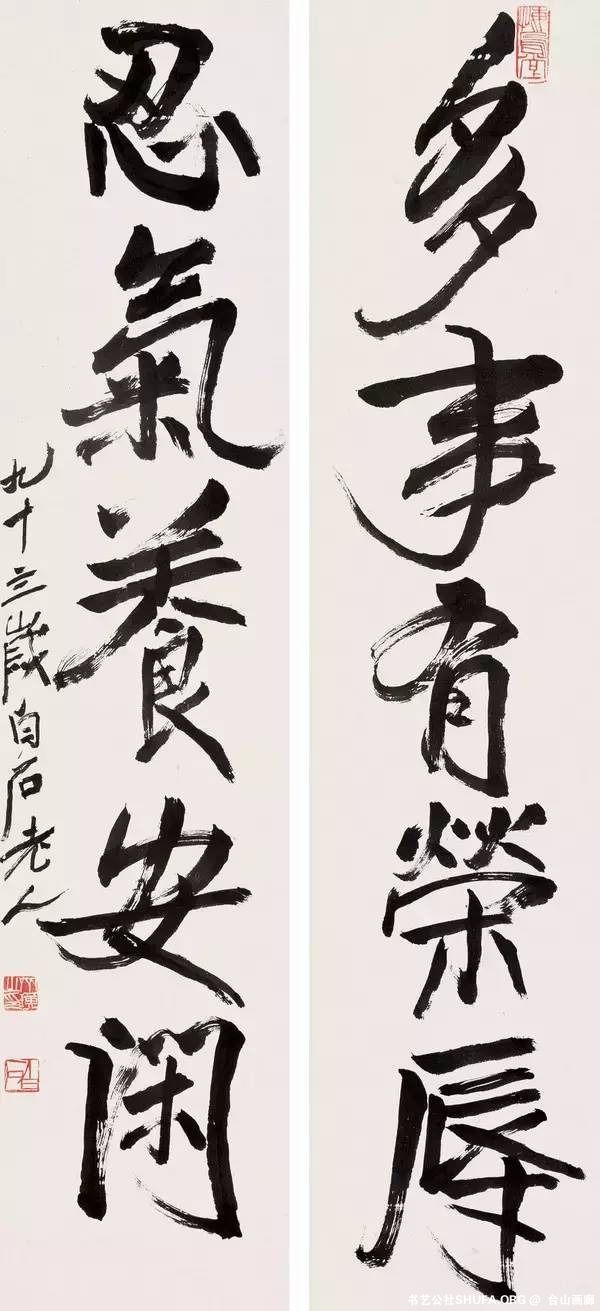 多事有榮辱
忍氣養安閑
九十三歲白石老人
书艺公社SHUFA.ORG @ 台山画廊